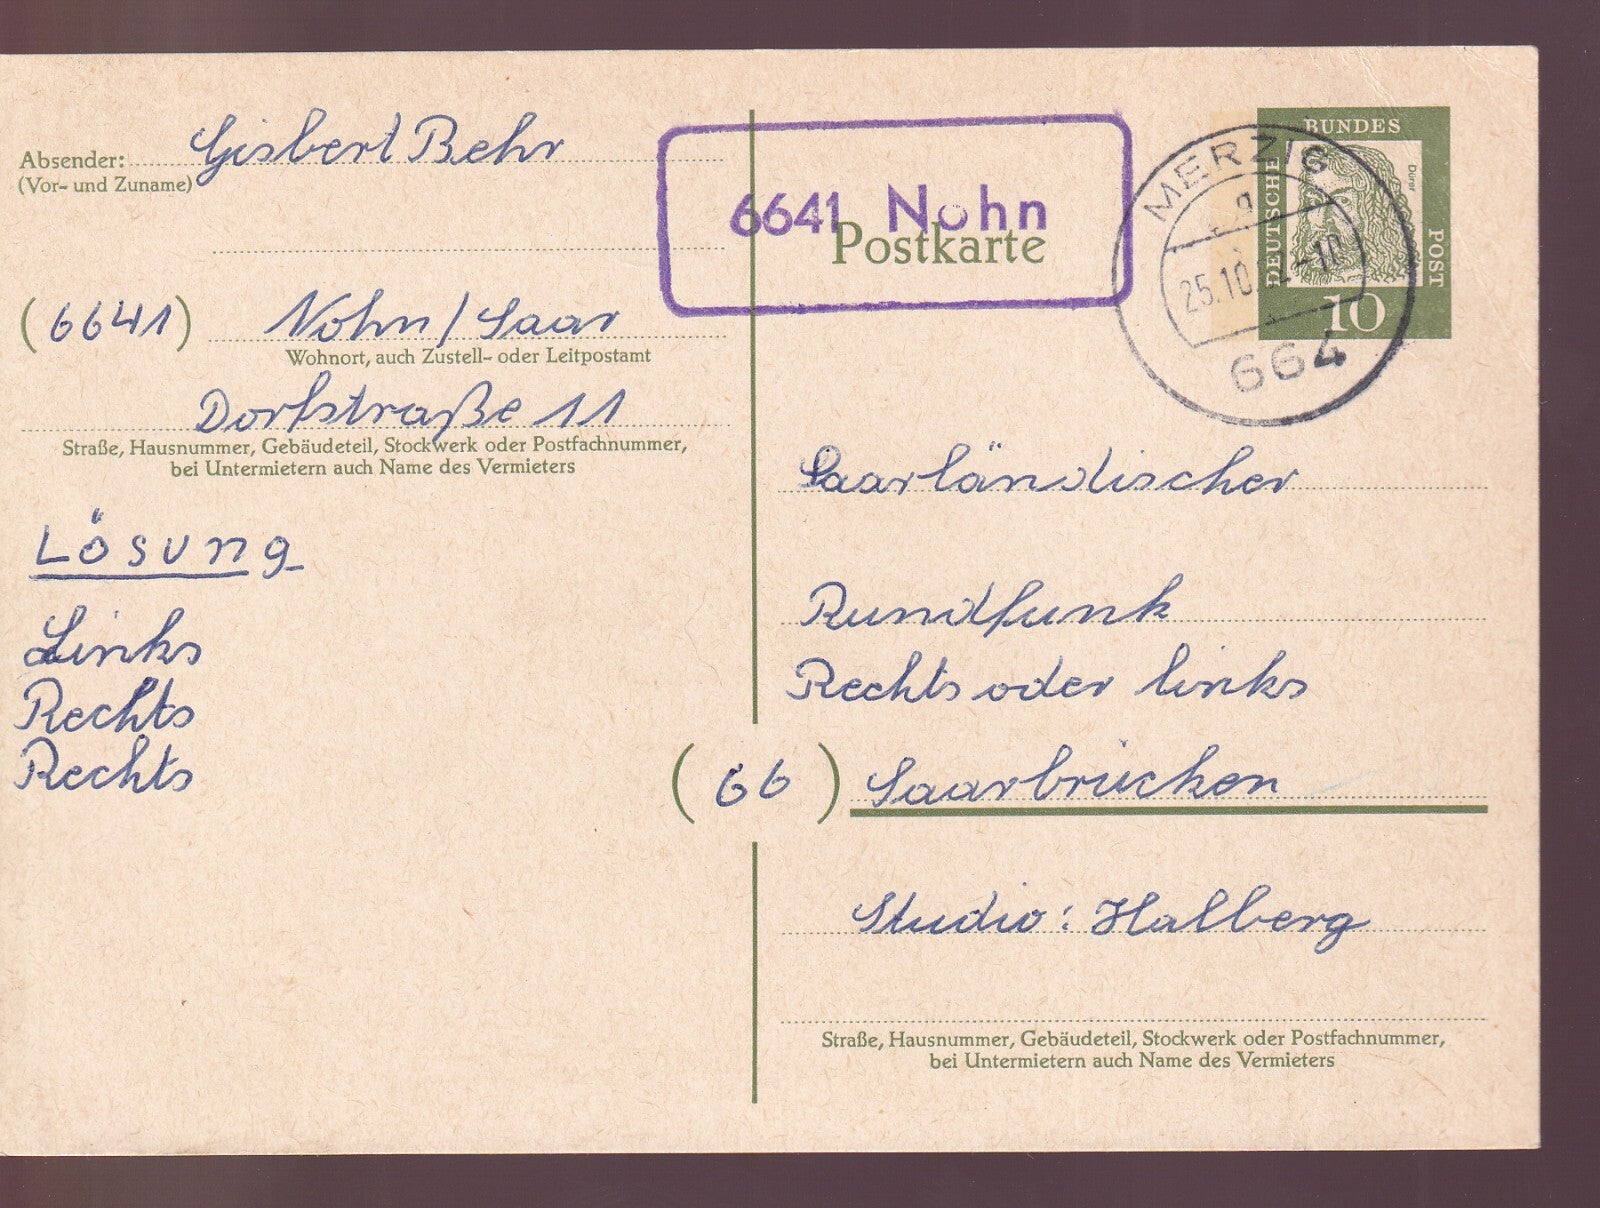 Absender: Gisbert Behr
(Vor- und Zuname)
(6641) Nohn/Saar
Wohnort, auch Zustell- oder Leitpostamt
Dorfstraße 11
Straße, Hausnummer, Gebäudeteil, Stockwerk oder Postfachnummer,
bei Untermietern auch Name des Vermieters
Lösung
Links
Rechts
Rechts
6641 Nohn
Postkarte
MERZIG
25.10.
664
DEUTSCHE
BUNDES
POST
Dürer
10
Saarländischer
Rundfunk
Rechts oder links
(66) Saarbrücken
Studio: Halberg
Straße, Hausnummer, Gebäudeteil, Stockwerk oder Postfachnummer,
bei Untermietern auch Name des Vermieters